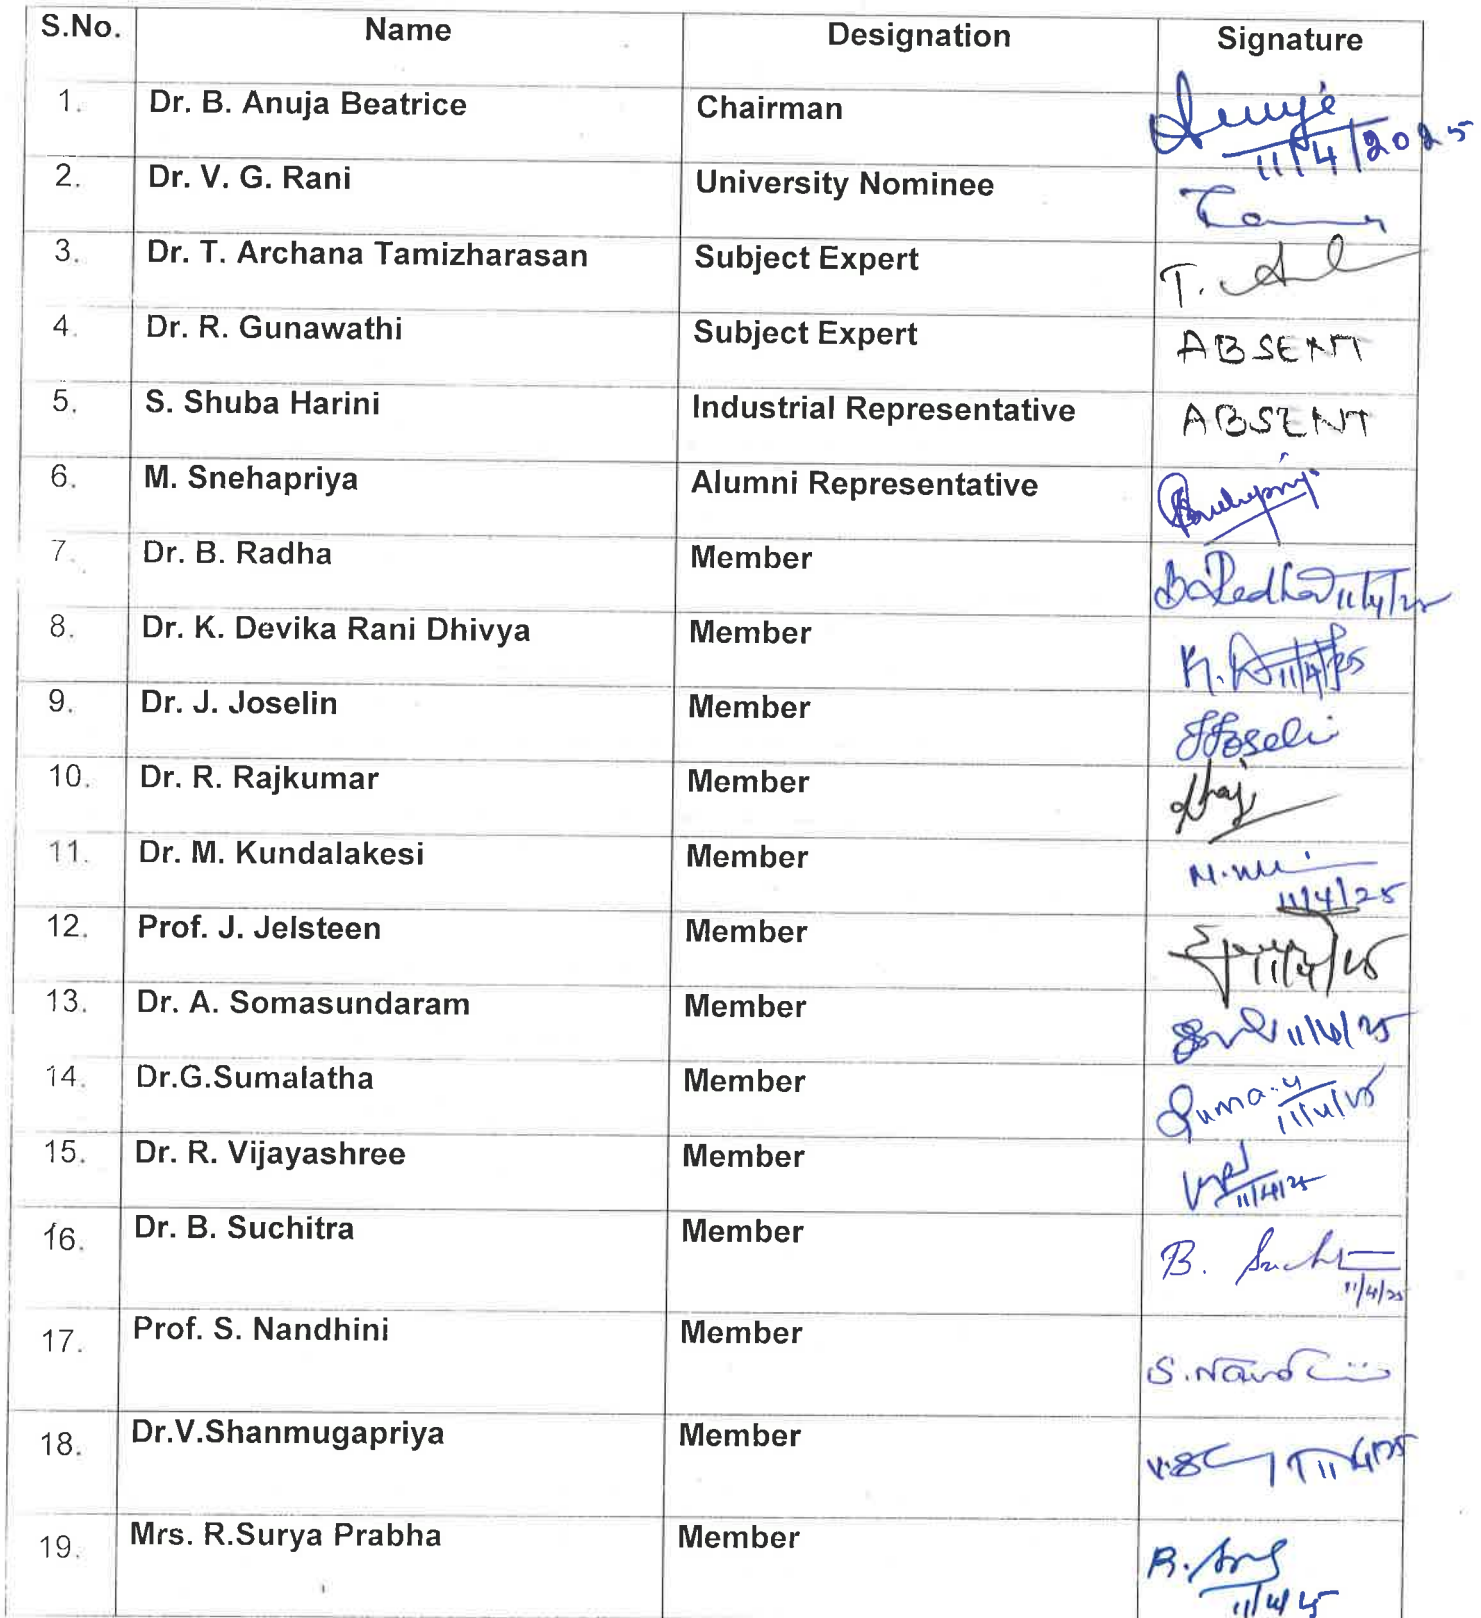 S.No. Name Designation Signature
1. Dr. B. Anuja Beatrice Chairman 11/4/2025
2. Dr. V. G. Rani University Nominee
3. Dr. T. Archana Tamizharasan Subject Expert T.
4. Dr. R. Gunawathi Subject Expert ABSENT
5. S. Shuba Harini Industrial Representative ABSENT
6. M. Snehapriya Alumni Representative
7. Dr. B. Radha Member B. Radha 11/4/25
8. Dr. K. Devika Rani Dhivya Member K. 11/4/25
9. Dr. J. Joselin Member
10. Dr. R. Rajkumar Member
11. Dr. M. Kundalakesi Member 11/4/25
12. Prof. J. Jelsteen Member 11/4/25
13. Dr. A. Somasundaram Member 11/4/25
14. Dr.G.Sumalatha Member 11/4/25
15. Dr. R. Vijayashree Member 11/4/25
16. Dr. B. Suchitra Member B. 11/4/25
17. Prof. S. Nandhini Member
18. Dr.V.Shanmugapriya Member 11/4/25
19. Mrs. R.Surya Prabha Member 11/4/25